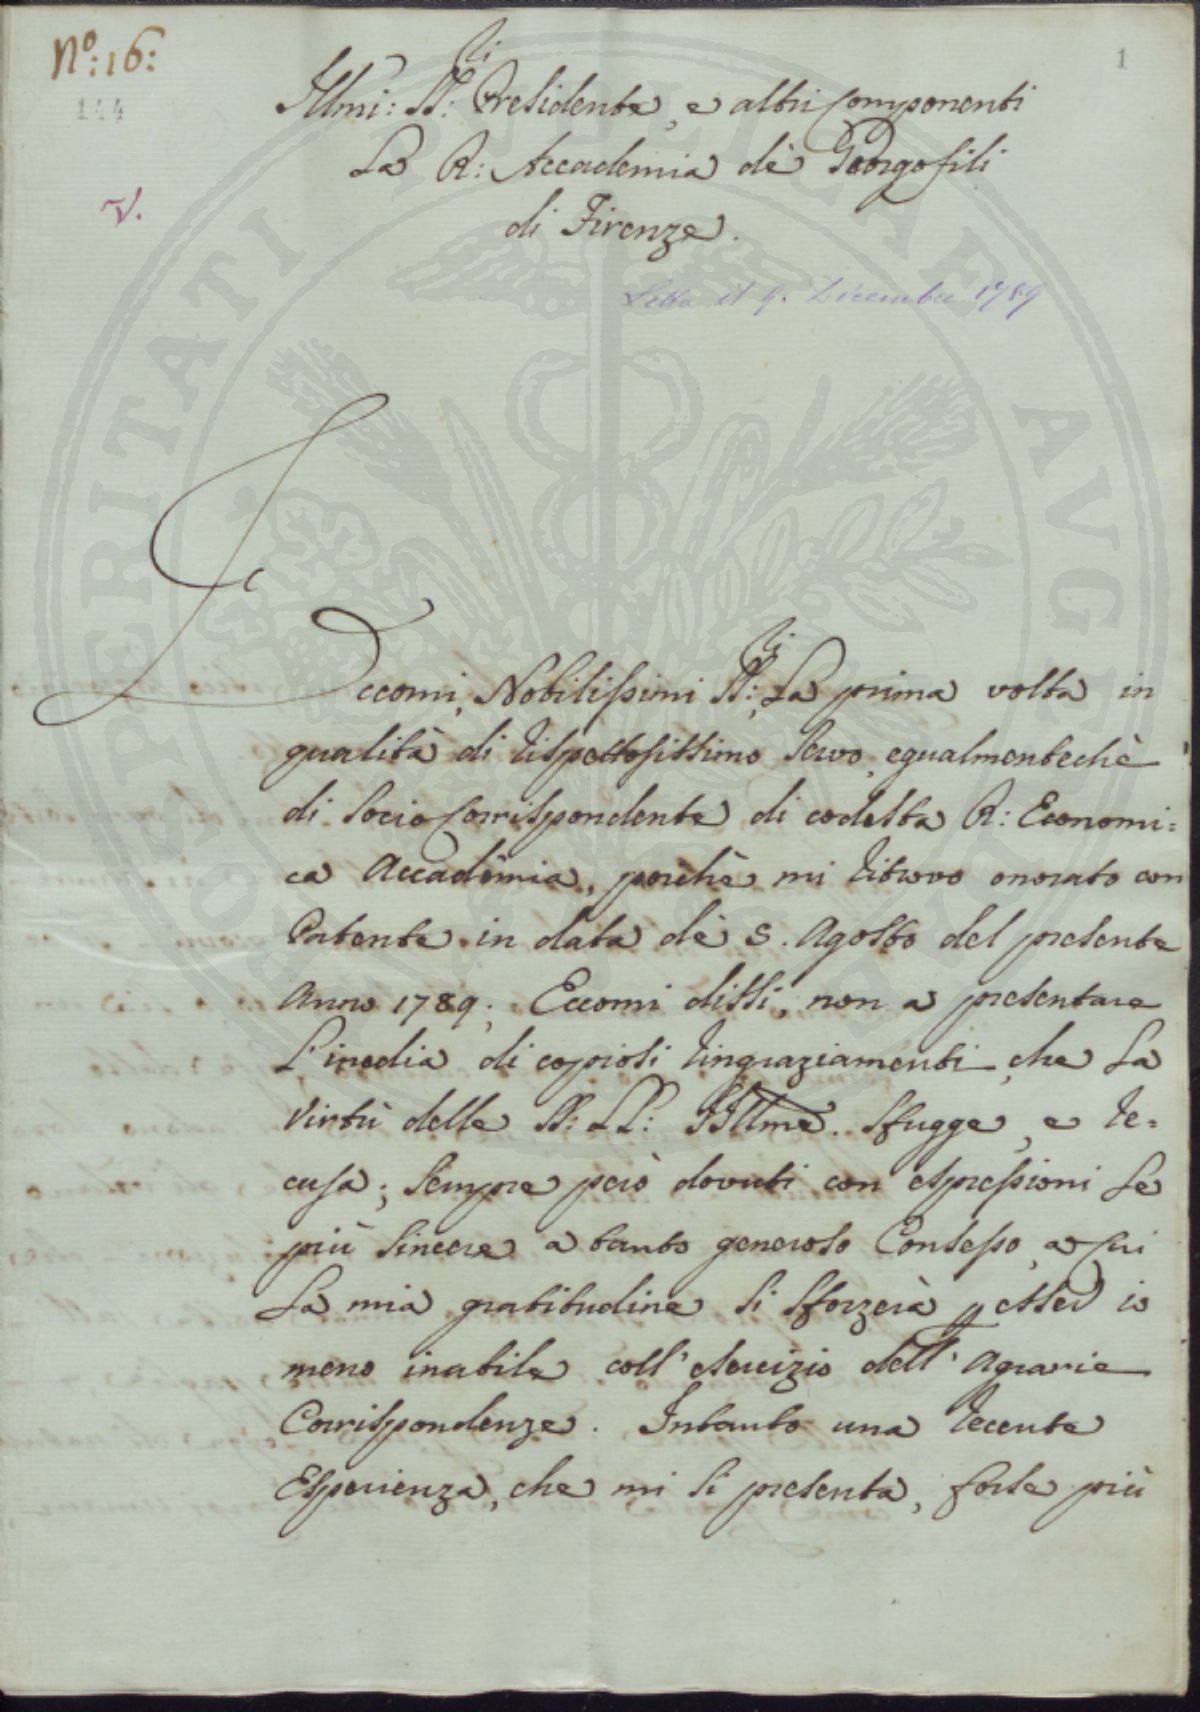 Nº: 16:
1
144
Illmi: SS:ri Presidente, e altri Componenti
La R: Accademia dè Georgofili
di Firenze.
V.
Letta il 9. Dicembre 1789
Eccomi, Nobilissimi SS:ri, La prima volta in
qualità di rispettosissimo servo, egualmentechè
di Socio Corrispondente di codesta R: Economi=
ca Accadèmia, perchè mi ritrovo onorato con
Patente in data dè 5. Agosto del presente
Anno 1789. Eccomi dissi, non a presentare
L'inedia di copiosi ringraziamenti, che La
Virtù delle SS: LL: IIllme. sfugge, e re=
cusa; sempre però dovuti con espressioni Le
più sincere a tanto generoso Consesso, a cui
La mia gratitudine si sforzerà p esser io
meno inabile coll' esercizio dell' Agrarie
Corrispondenze. Intanto una recente
Esperienza, che mi si presenta, forse più
PROSPERITATI PUBLICAE AUGENDAE